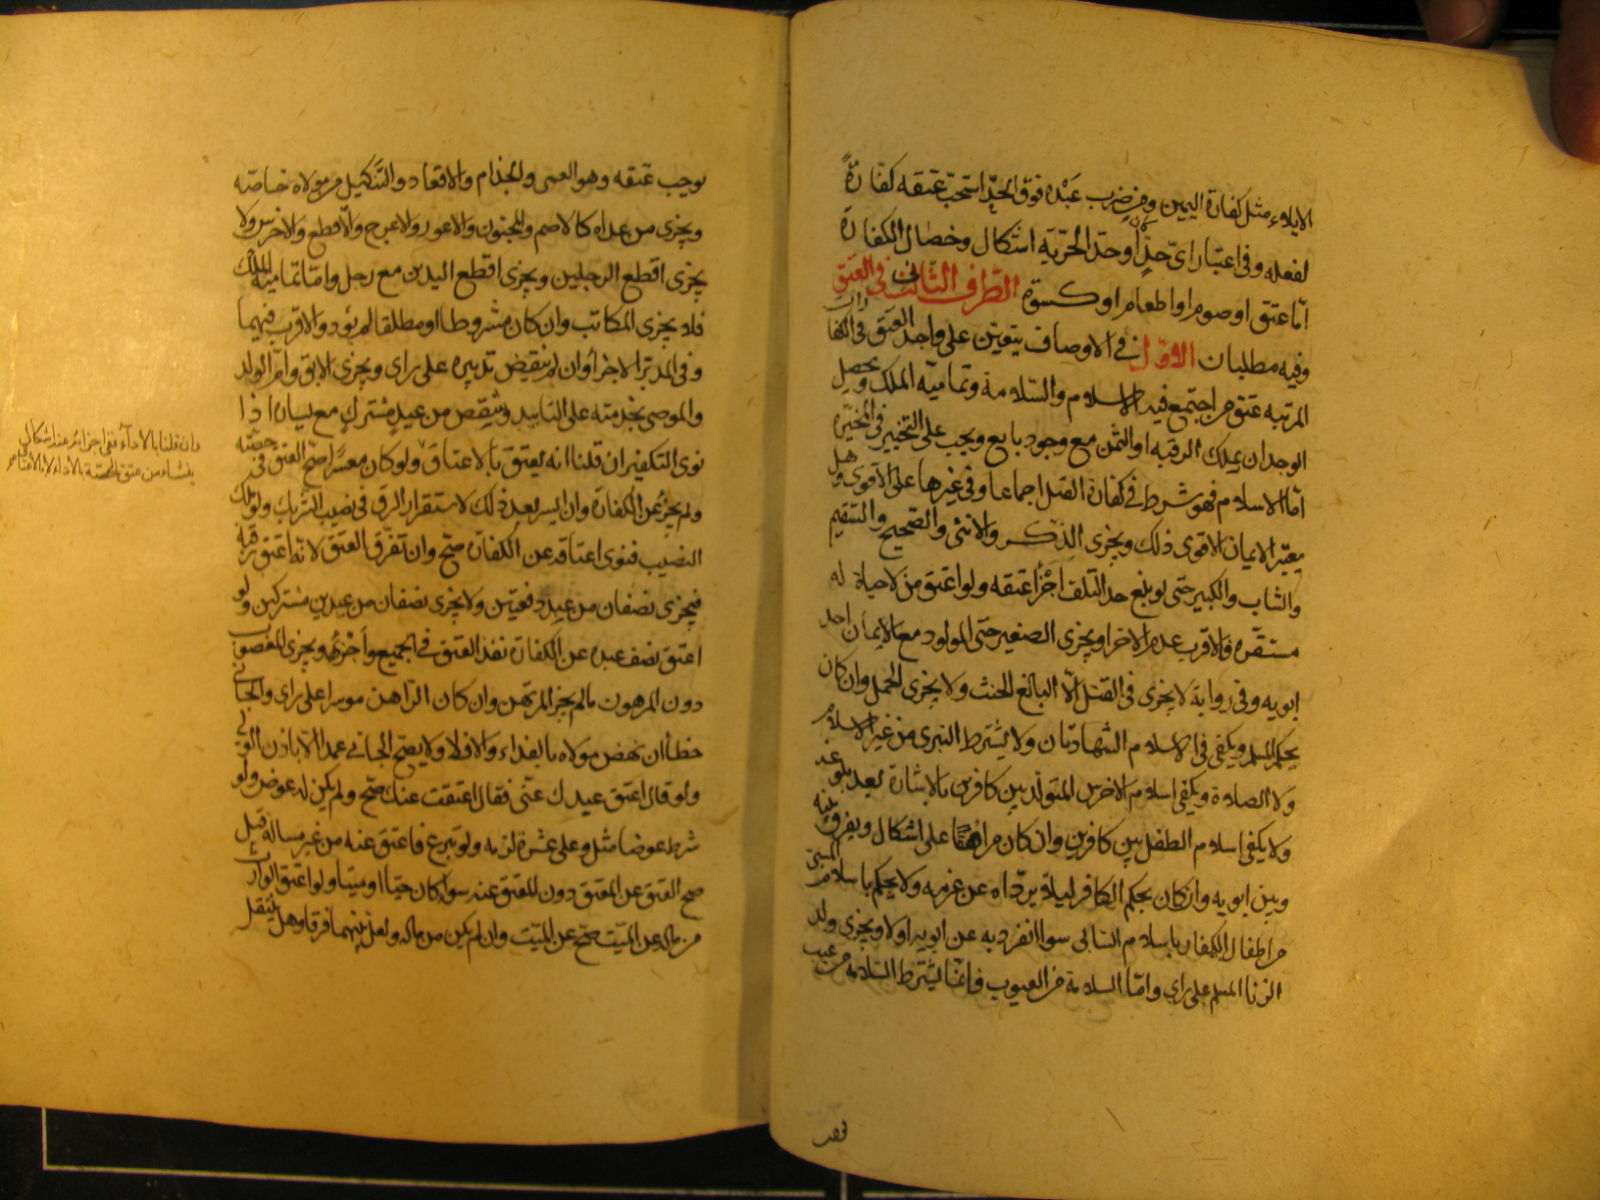 الايلاء مثل كفارة اليمين ومن ضرب عبده فوق الحد استحب عتقه كفارة
لفعله وفى اعتبار اىّ حدٍ أو حدّ الحرّيّة اشكال وخصال الكفارة
امّا عتق او صوم او اطعام او كسوة الطّرف الثّانى فى العتق
وفيه مطلبان الاوّل فى الاوصاف يتعين على واجد العتق فى الكفارات
المرتبه عتق من اجتمع فيه الاسلام والسّلامة وتماميّه الملك ويحصل
الوجدان بملك الرقبه او الثمن مع وجود بايع ويجب على التخيير فى المخيّرة
امّا الاسلام فهو شرط فى كفارة القتل اجماعا وفى غيرها على الاقوى وهل
يعتبر الايمان الاقوى ذلك ويجزى الذكر والانثى والصّحيح والسّقيم
والشاب والكبير حتى لو بلغ حد التلف اجزأ عتقه ولو اعتق من لا حياة له
مستقرة فالاقرب عدم الاجزا ويجزى الصغير حتى المولود مع ايمان احد
ابويه وفى رواية لا يجزى فى القتل الّا البالغ الحنث ولا يجزى الحمل وان كان
بحكم المسلم ويكفى فى الاسلام الشهادتان ولا يشترط التبرى من غير الاسلام
ولا الصلاة ويكفى اسلام الاخرس المتولّد بين كافرين بالاشارة بعد بلوغه
ولا يكفى اسلام الطفل بين كافرين وان كان مراهقًا على اشكال ويفرق بينه
وبين ابويه وان كان بحكم الكافر ليلا يردّاه عن عزمه ولا يحكم باسلام المسبى
من اطفال الكفار باسلام السّابى سوا انفرد به عن ابويه او لا ويجزى ولد
الزنا المسلم على راى وامّا السلامة من العيوب فانما يشترط السّلامة من عيب
يوجب عتقه وهو العمى والجذام والاقعاد والتنكيل من مولاه خاصّه
ويجزى من عداه كالاصم والمجنون والاعور والاعرج والاقطع والاخرس ولا
يجزى اقطع الرجلين ويجزى اقطع اليدين مع رجل وامّا تماميه الملك
فلا يجزى المكاتب وان كان مشروطا او مطلقا لم يؤد والاقرب فيهما
وفى المدبّر الاجزأ وان لم ينقض تدبيره على راى ويجزى الابق وام الولد
والموصى بخدمته على التابيد وشقص من عبدٍ مشتركٍ مع يسار اذا
نوى التكفير ان قلنا انه يعتق بالاعتاق ولو كان معسرًا صحّ العتق فى حصّته
وان قلنا بالاداء ففى اجزائه عند اشكال
ينشاء من عتق الحصّة بالاداء لا بالاعتاق
ولم يجز عن الكفارة وان ايسر بعد ذلك لاستقرار الرق فى نصيب الشّريك ولو ملك
النصيب فنوى اعتاقه عن الكفارة صحّ وان تفرّق العتق لانّه اعتق رقبة
فيجزى نصفان من عبد دفعتين ولا يجزى نصفان من عبدين مشتركين ولو
اعتق نصف عبده عن الكفارة نفذ العتق فى الجميع وأجزأ ويجزى المغصوب
دون المرهون مالم يجز المرتهن وان كان الراهن موسرا على راى والجانى
خطأ ان نهض مولاه بالفداء والا فلا ولا يصحّ الجانى عمدا الا باذن الولى
ولو قال اعتق عبدك عنّى فقال اعتقت عنك صحّ ولم يكن له عوض ولو
شرط عوضا مثل وعلى عشرة لزمه ولو تبرع فاعتق عنه من غير مسالة قيل
صح العتق عن المعتق دون المعتق عنه سواء كان حيّا او ميتا ولو اعتق الوارث
من ماله عن الميّت صحّ عن الميّت وان لم يكن من ماله ولعل بينهما فرقا وهل ينتقل